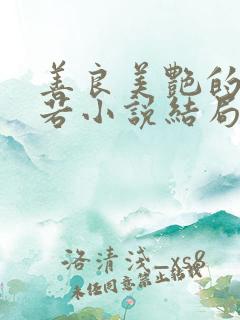 善良美艷的
若小說結局
洛清淺_xs8
未经同意禁止转载